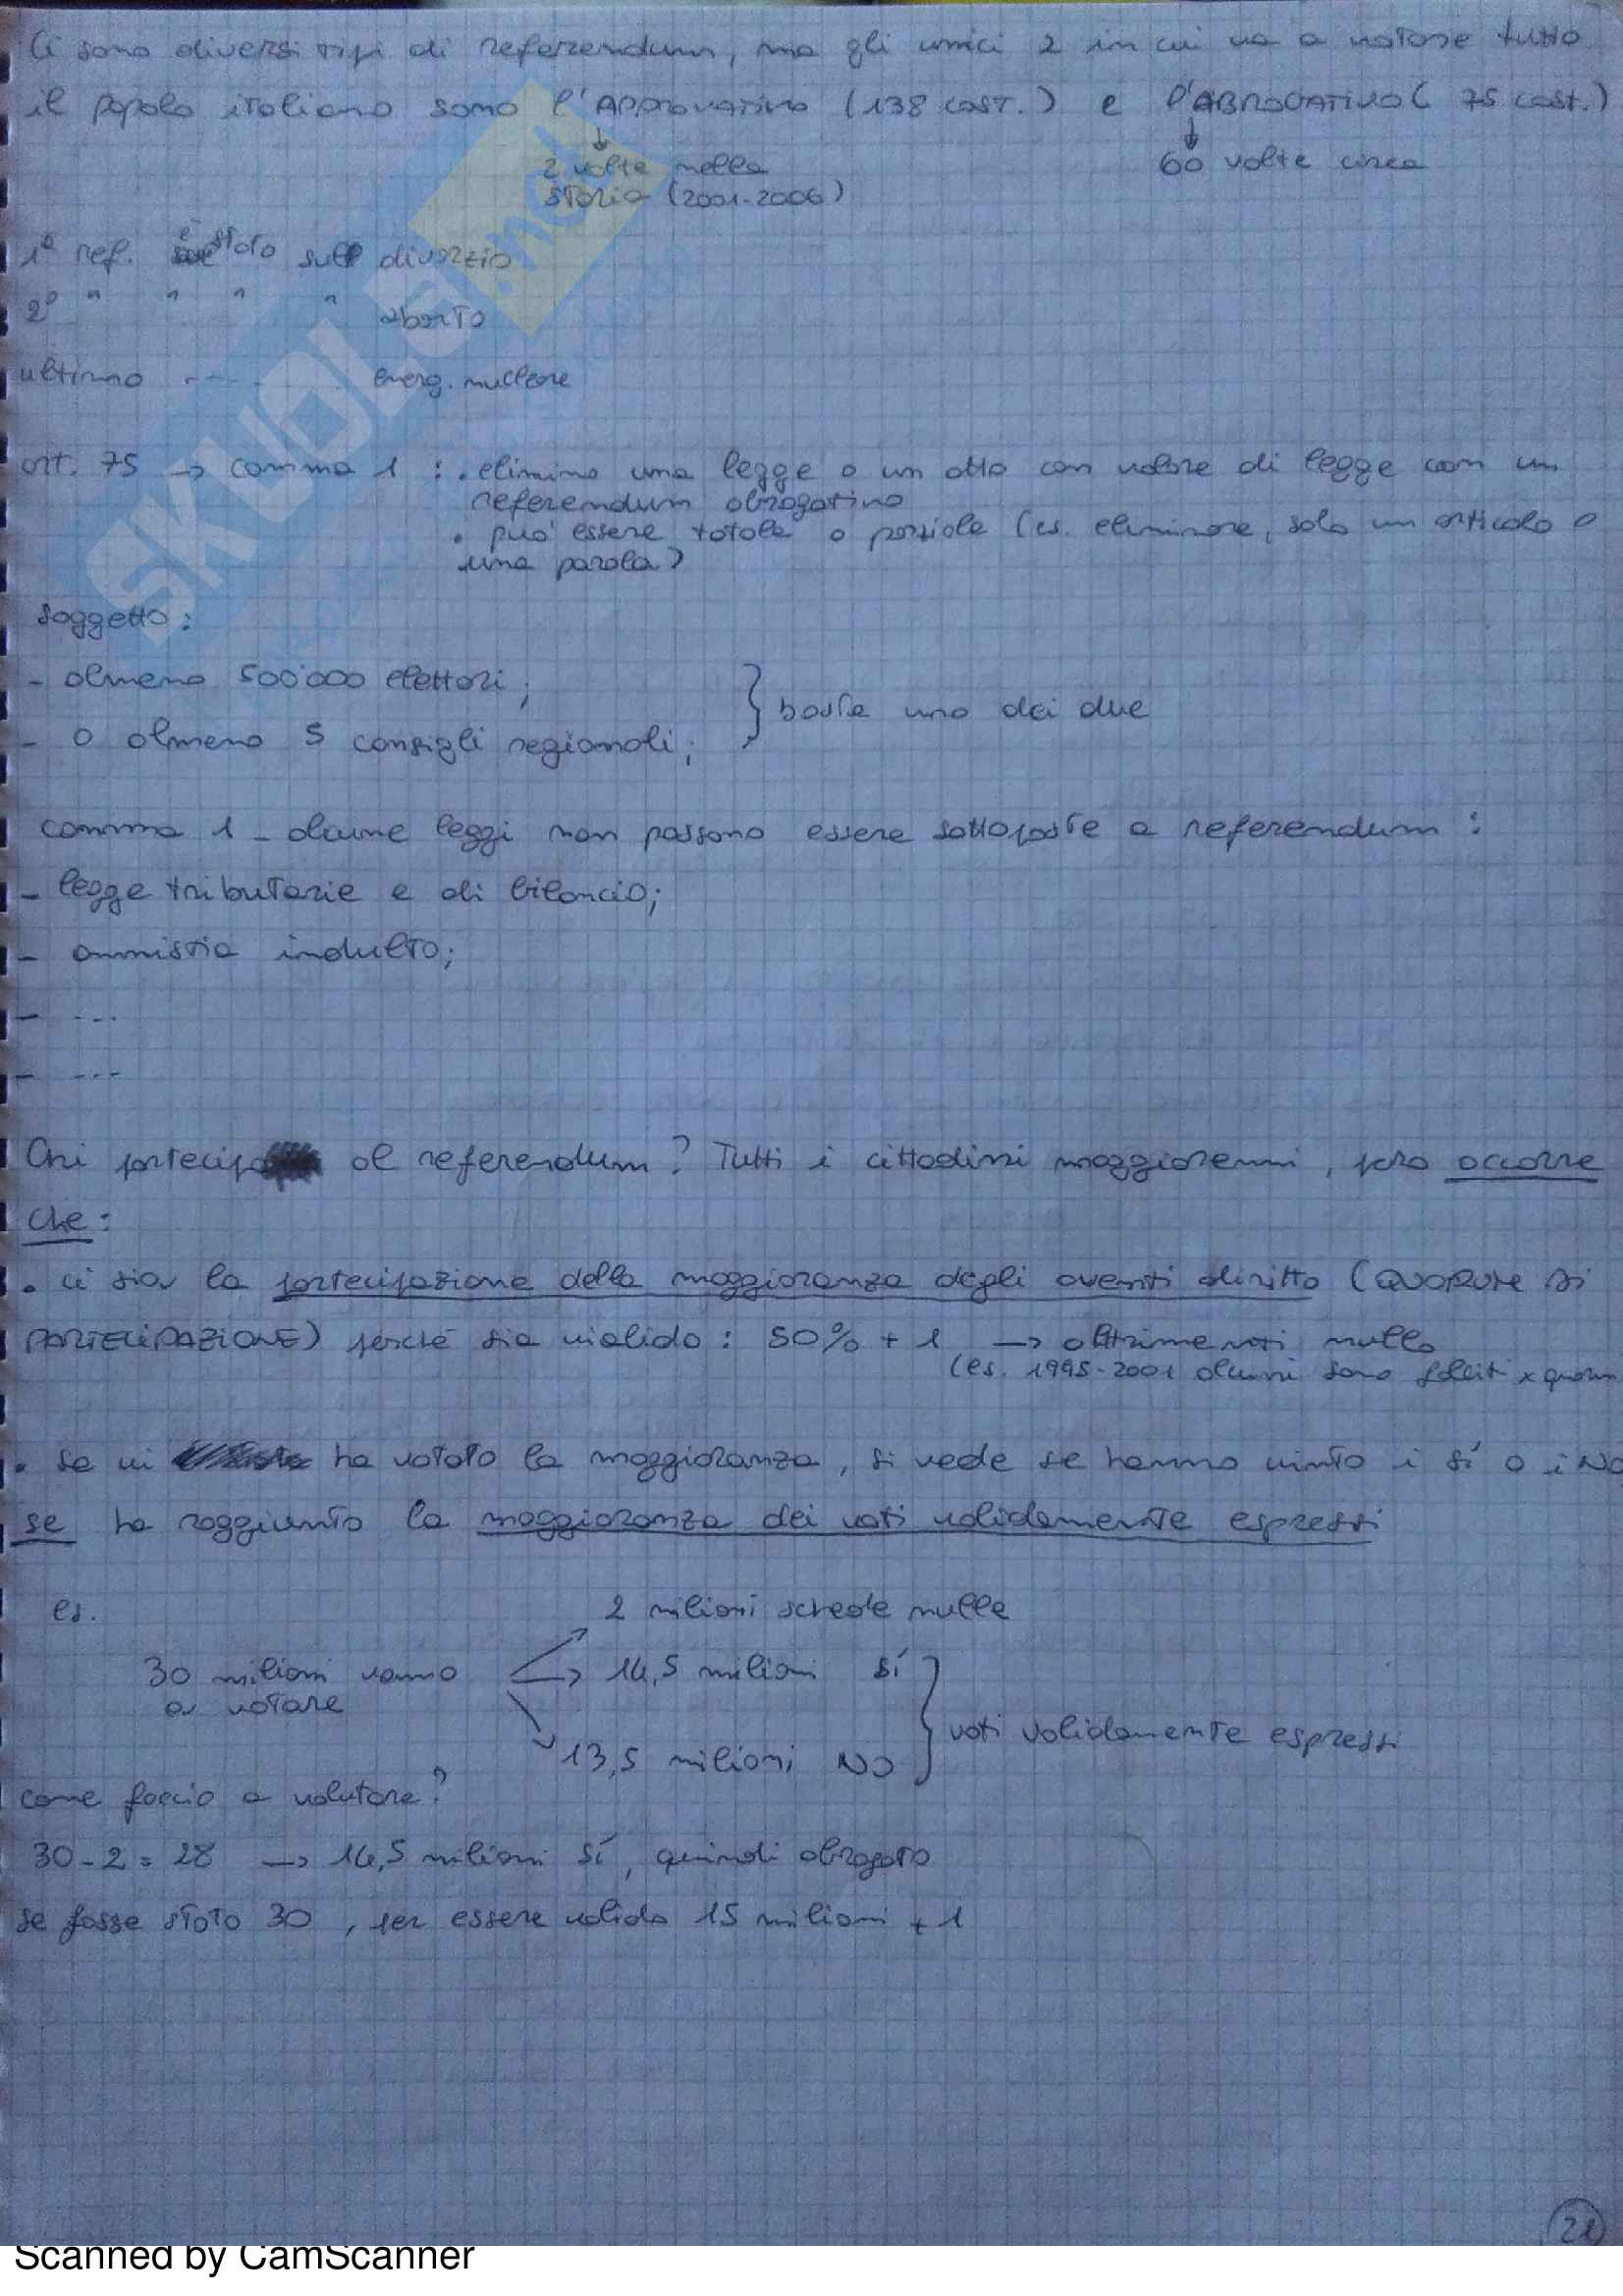 Ci sono diversi tipi di referendum, ma gli unici 2 in cui va a votare tutto
il popolo italiano sono l'APPROVATIVO (138 COST.) e l'ABROGATIVO ( 75 cost.)
↓ ↓
2 volte nella 60 volte circa
storia (2001-2006)
1° ref. è stato sul divorzio
2° " " " " aborto
ultimo ---- energ. nucleare
art. 75 → comma 1 : . elimino una legge o un atto con valore di legge con un
referendum abrogativo
. può essere totale o parziale (es. eliminare, solo un articolo o
una parola)
soggetto:
- almeno 500'000 elettori;
} basta uno dei due
- o almeno 5 consigli regionali;
comma 1 - alcune leggi non possono essere sottoposte a referendum :
- legge tributarie e di bilancio;
- amnistia indulto;
- ---
- ---
Chi partecipa al referendum? Tutti i cittadini maggiorenni, però occorre
che:
. ci sia la partecipazione della maggioranza degli aventi diritto (QUORUM DI
PARTECIPAZIONE) perché sia valido : 50% + 1 → altrimenti nullo
(es. 1995-2001 alcuni sono falliti x quorum
. Se vi ha votato la maggioranza, si vede se hanno vinto i sí o i NO
se ha raggiunto la maggioranza dei voti validamente espressi
es. 2 milioni schede nulle
30 milioni vanno → 14,5 milioni sí
a votare } voti validamente espressi
13,5 milioni NO
come faccio a valutare?
30-2 = 28 → 14,5 milioni sí, quindi abrogato
se fosse stato 30, per essere valido 15 milioni + 1
21
SKUOLA.net
Scanned by CamScanner